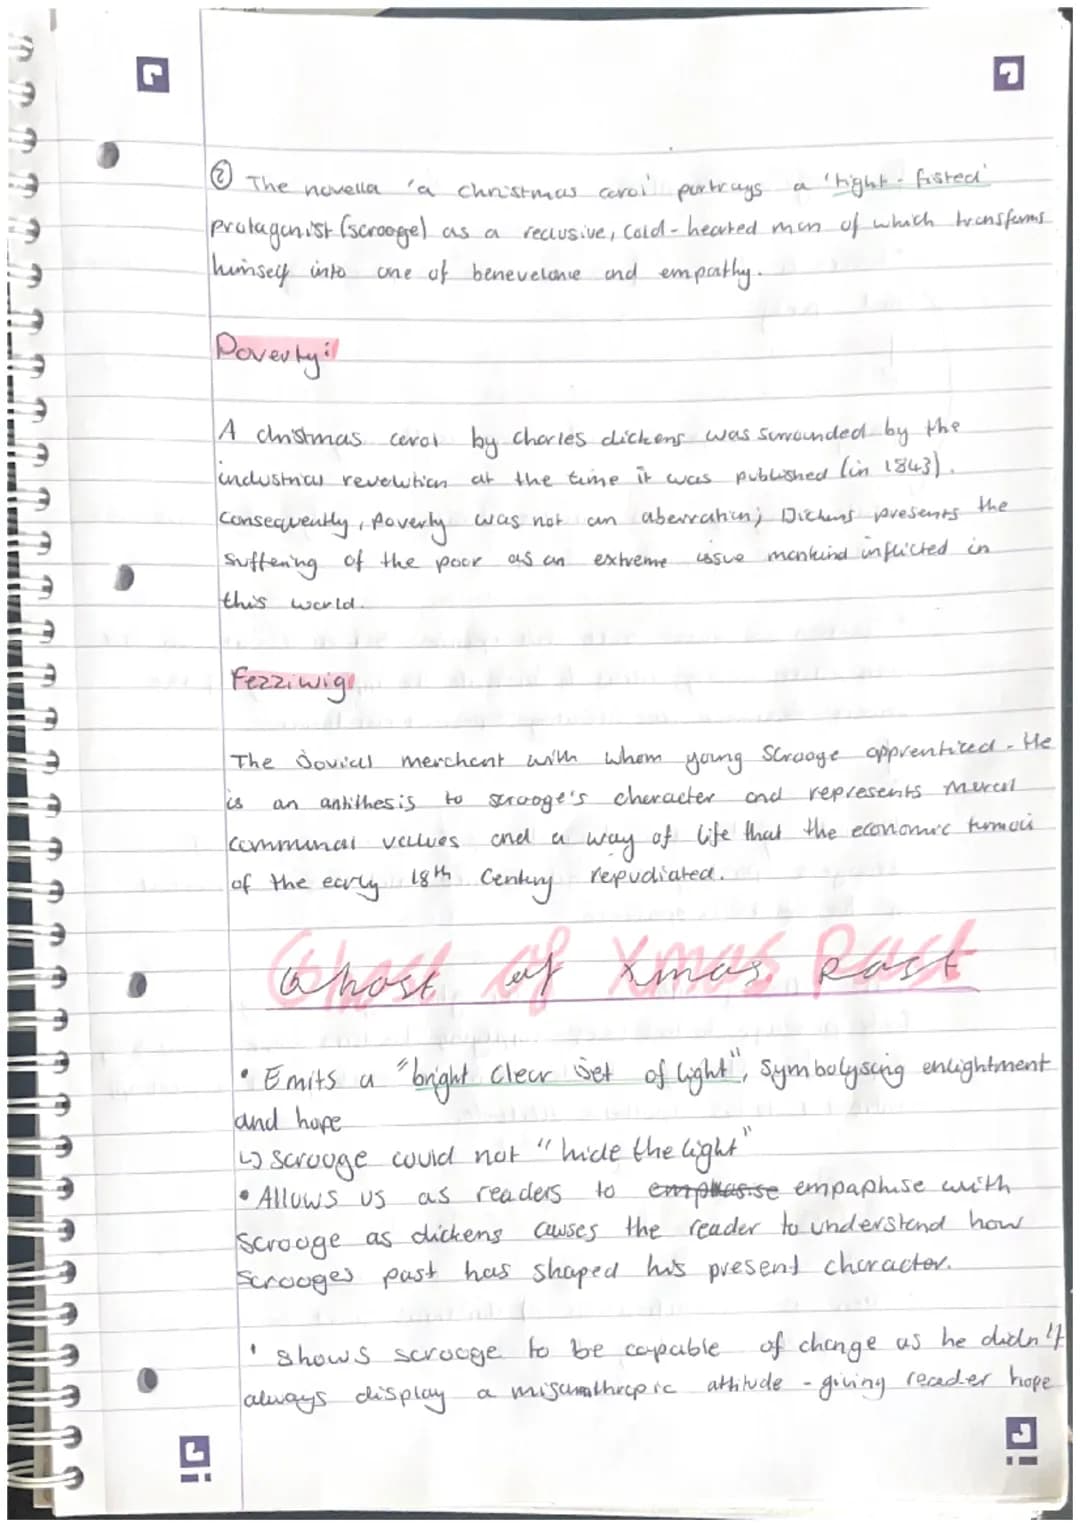 ② The novella 'a christmas carol' portrays a 'tight-fisted'
protagonist (scrooge) as a reclusive, cold-hearted man of which transforms
himself into one of benevelone and empathy.
Poverty:
A christmas carol by charles dickens was surrounded by the
industrial revolution at the time it was published (in 1843).
Consequently, poverty was not an aberration; Dickens presents the
suffering of the poor as an extreme issue mankind inflicted in
this world.
Fezziwig
The Jovial merchant with whom young Scrooge apprenticed - He
is an antithesis to scrooge's character and represents moral
communal values and a way of life that the economic
of the early 18th Century repudiated.
Ghost of Xmas Past
• Emits a "bright clear jet of light", symbolyscing enlightment
and hope
↳ scrooge could not "hide the light"
• Allows us as readers to emphasise empaphise with
scrooge as dickens causes the reader to understand how
Scrooges past has shaped his present character.
• shows scrooge to be capable of change as he didn't
always display a misanthropic attitude - giving reader hope